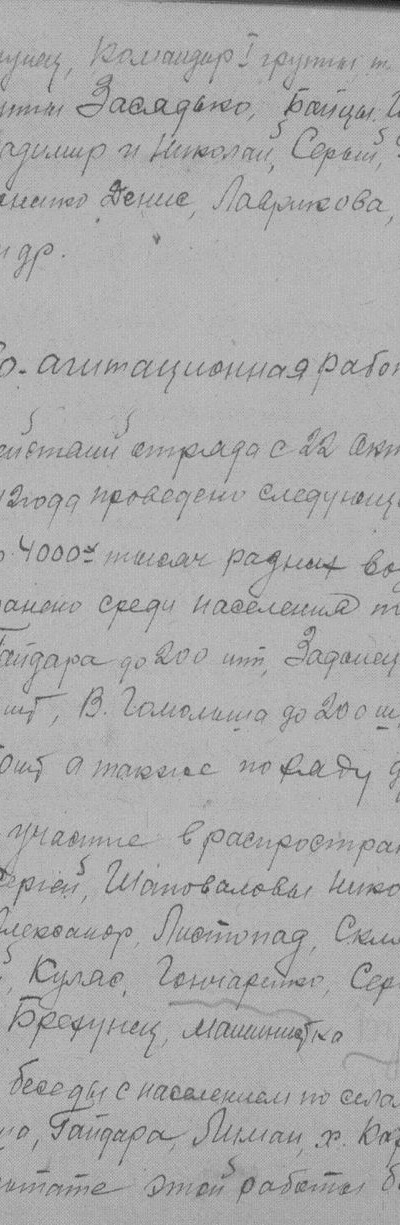 Командир I группы т.
Засядько, Бойцы
Владимир и Николай, Серый,
Денис, Лаврикова,
и др.
агитационная работ
отряда с 22 Окт
2 года проведено следующе
4000х тысяч разных во
ранено среди населения
Гайдара до 200 шт, Задонец
шт, В. Гомольша до 200 ш
0 шт а также по ряду д
участие в распростран
Сергей, Шаповаловы Нико
Александр, Листопад, Скля
Куляс, Гончаренко, Сер
Брехунец, машинистка
беседы с населением по села
Гайдара, Лиман, х.
этой работы б